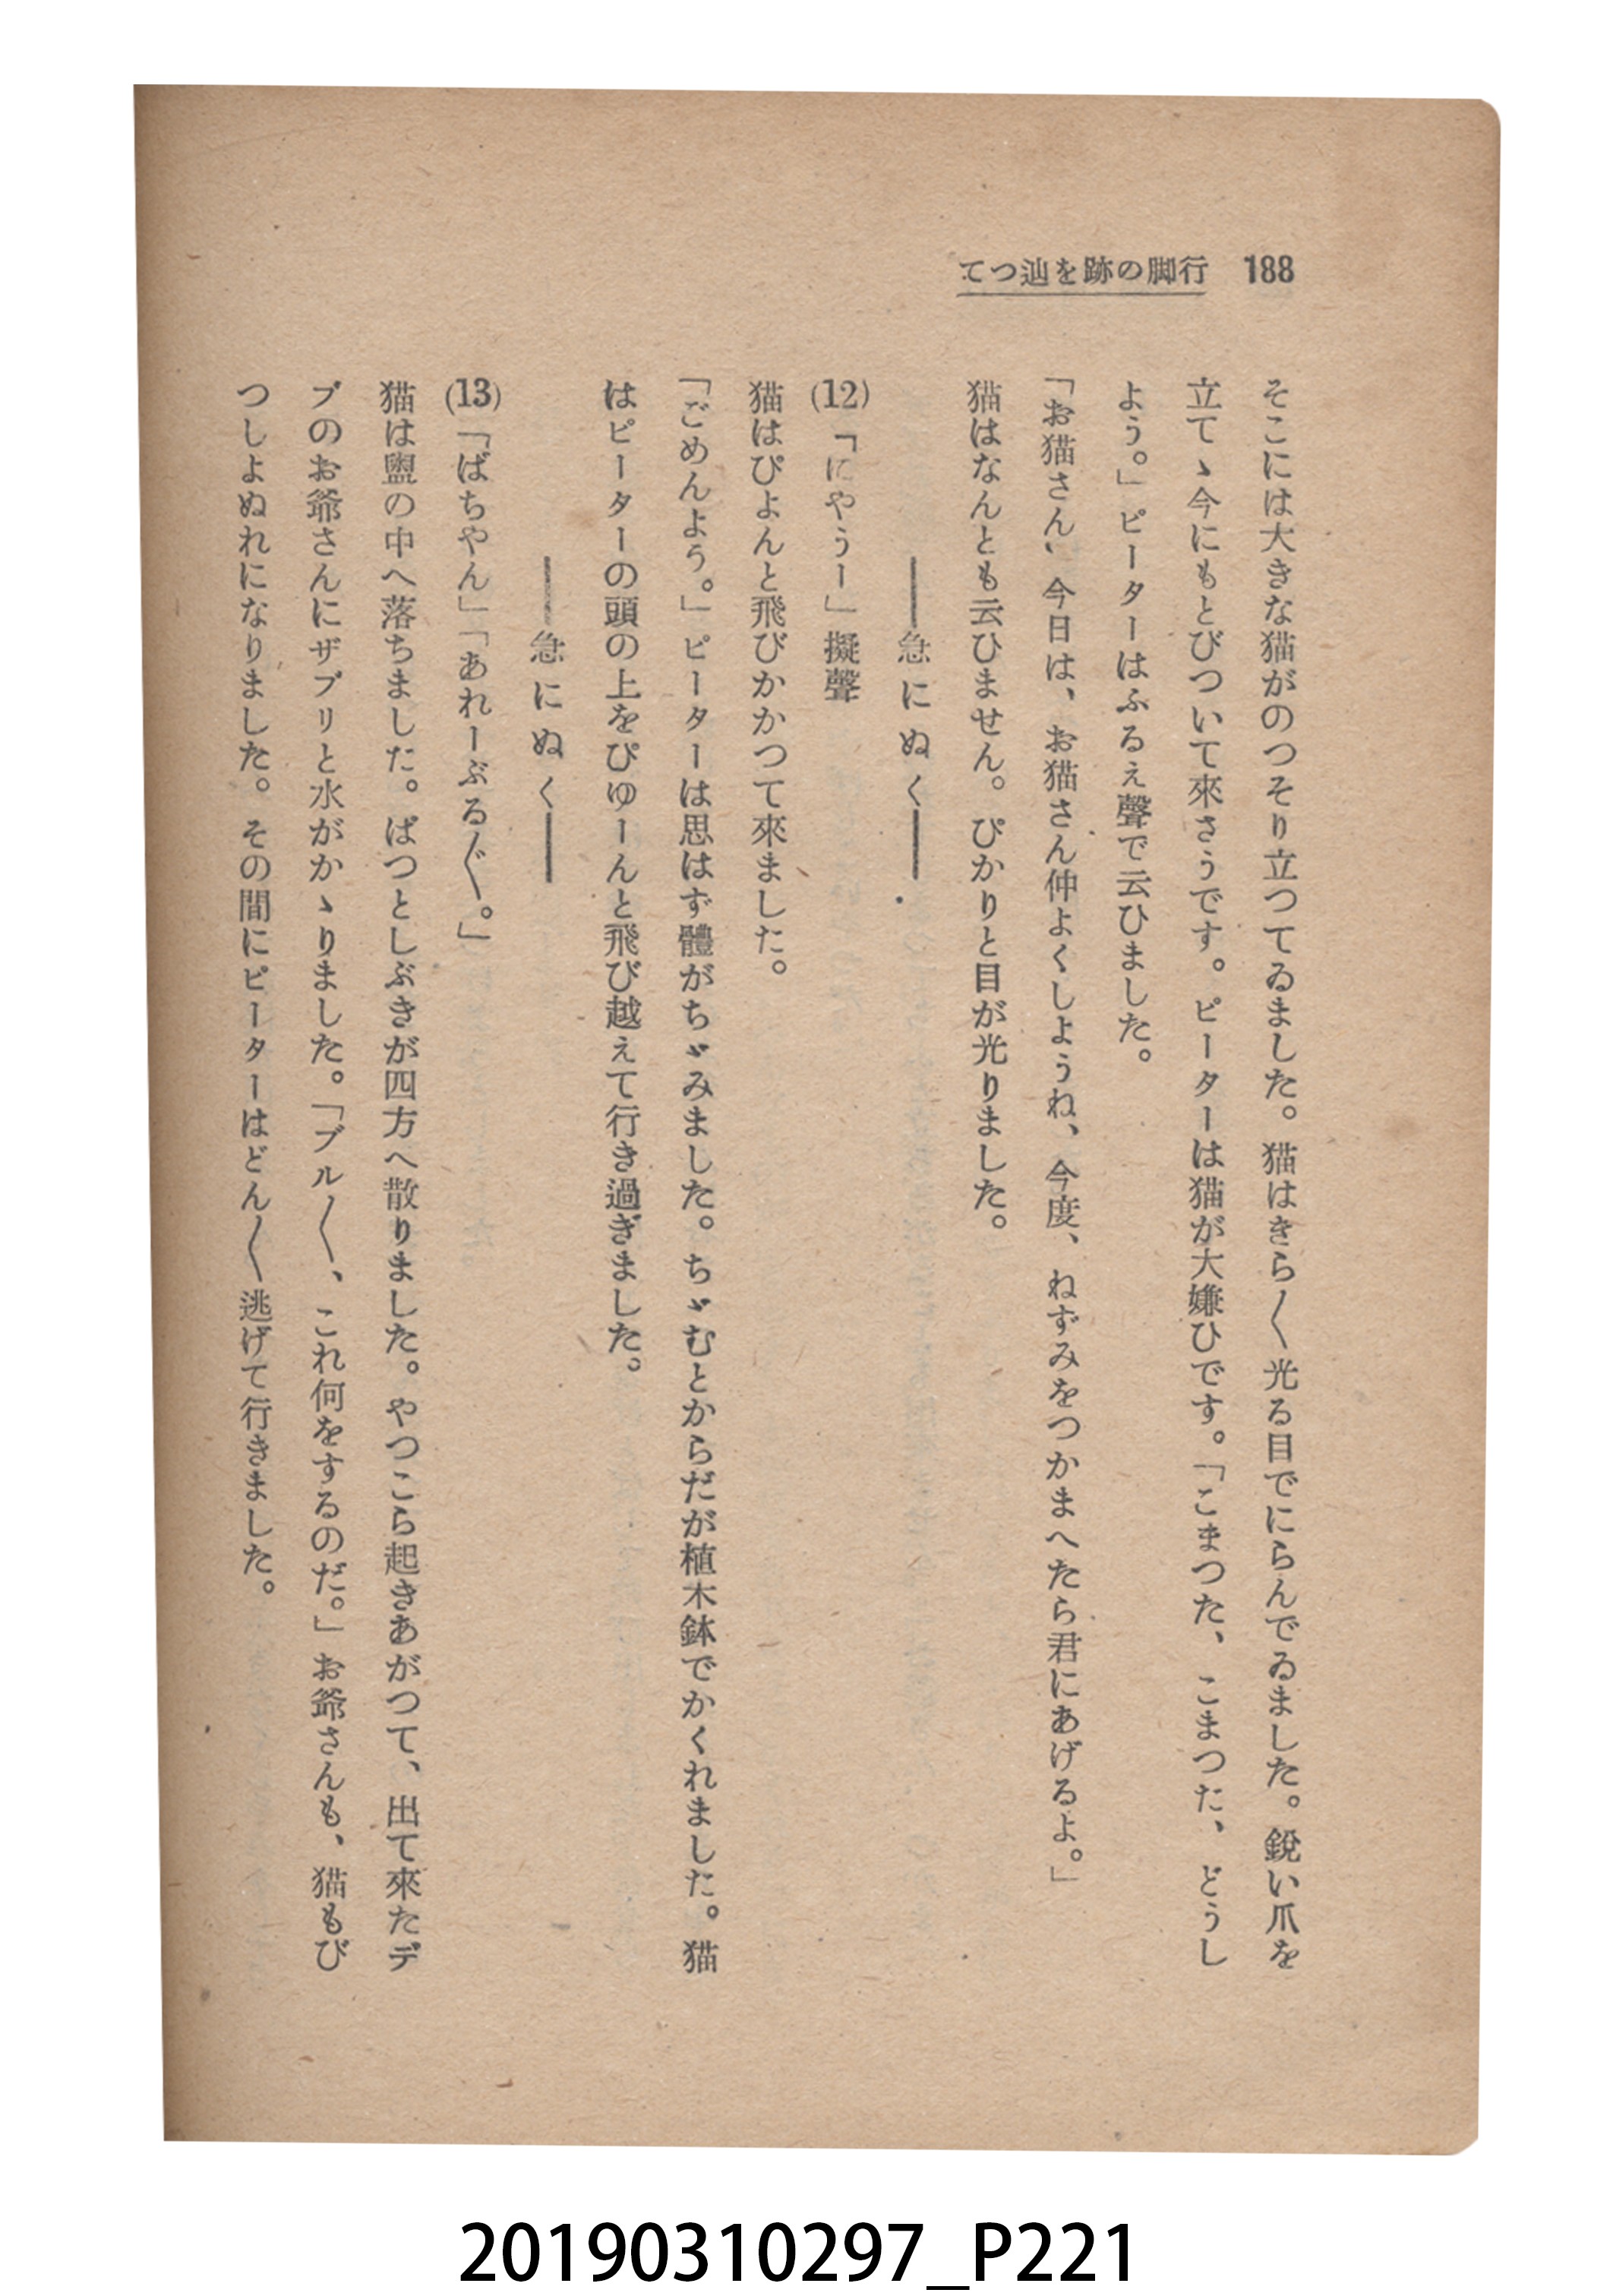 188 行脚の跡を辿つて
そこには大きな猫がのつそり立つてゐました。猫はきら〱光る目でにらんでゐました。鋭い爪を
立てゝ今にもとびついて來さうです。ピーターは猫が大嫌ひです。「こまつた、こまつた、どうし
よう。」ピーターはふるえ聲で云ひました。
「お猫さん、今日は、お猫さん仲よくしようね、今度、ねずみをつかまへたら君にあげるよ。」
猫はなんとも云ひません。ぴかりと目が光りました。
――急にぬく――
(12)「にやうー」擬聲
猫はぴよんと飛びかかつて來ました。
「ごめんよう。」ピーターは思はず體がちゞみました。ちゞむとからだが植木鉢でかくれました。猫
はピーターの頭の上をぴゆーんと飛び越えて行き過ぎました。
――急にぬく――
(13)「ばちやん」「あれーぶる〲。」
猫は盥の中へ落ちました。ぱつとしぶきが四方へ散りました。やつこら起きあがつて、出て來たデ
ブのお爺さんにザブリと水がかゝりました。「ブル〱、これ何をするのだ。」お爺さんも、猫もび
つしよぬれになりました。その間にピーターはどん〱逃げて行きました。
20190310297_P221